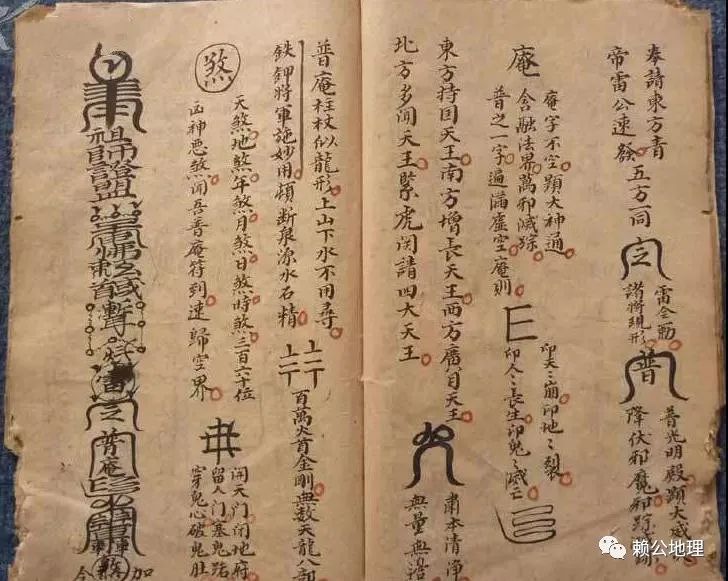 奉請東方青
帝雷公速發五方一同
雷令
諸將現形
普
普光明殿顯大威
降伏邪魔邪踪
庵
庵字不空顯大神通
含融法界萬邪滅踪
普之一字遍滿虛空庵則
印天天崩印地地裂
印人人長生印鬼鬼滅亡
東方持国天王南方增長天王西方廣目天王
北方多聞天王緊虎関請四大天王
肅本清净
無量無
普庵柱杖似龍形上山下水不用尋
鉄鉀將軍施妙用頓断泉源水石精
百萬火首金剛無数天龍八部
煞
天煞地煞年煞月煞日煞時煞三百六十位
凶神悪煞聞吾普庵符到速歸空界
開天門闭地府
留人門塞鬼路
穿鬼心破鬼肚
祖師證盟
普庵
加
令
赖公地理